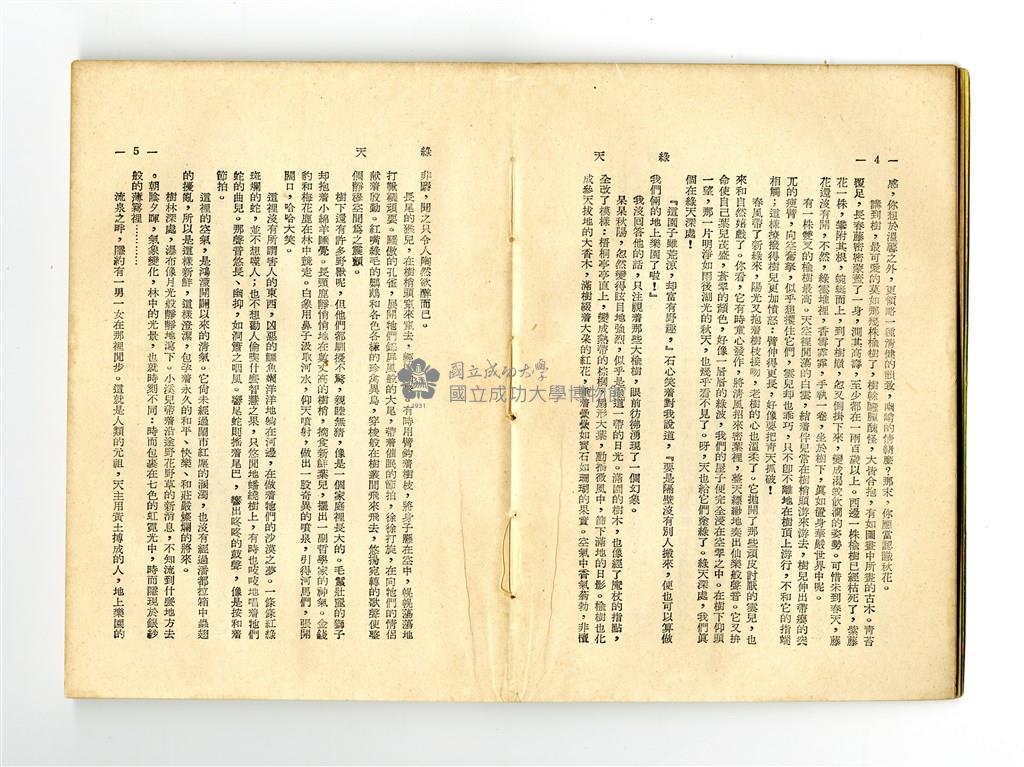 一 4 一
綠
天
感，你想於溫馨之外，更領略一種清健的韻致，幽峭的情緒麼？那末，你應當認識秋花。
講到樹，最可愛的莫如那幾株榆樹了，樹幹臃腫醜怪，大皆合抱，有如圖畫中所畫的古木。青苔
覆足，長春藤密密蒙蓋了一身，測其高壽，至少都在一兩百歲以上。西邊一株榆樹已經枯死了，紫藤
花一株，攀附其根，蜿蜒而上，到了樹巔，忽又倒掛下來，變成渴蛟飲澗的姿勢。可惜未到春天，藤
花還沒有開，不然，綠雲堆裡，香雪霏霏，手執一卷，坐於樹下，眞如置身華嚴世界中呢。
有一株雙叉的榆樹最高。天空裡閒蕩的白雲，結着伴兒常在樹梢頭游來游去，樹兒伸出帶瘿的突
兀的瘦臂，向空奮拏，似乎想攫住它們，雲兒却也乖巧，只不卽不離地在樹頂上游行，不和它的指端
相觸；這樣撩撥得樹兒更加憤怒：臂伸得更長，好像要把青天抓破！
春風帶了新綠來，陽光又抱着樹枝接吻，老樹的心也溫柔了。它拋開了那些頑皮討厭的雲兒，也
來和自然嬉戲了。你看，它有時童心發作，將清風招來密葉裡，整天縹緲地奏出仙樂般聲音。它又拚
命使自己葉兒茂盛，蒼翠的顏色，好像一層層的綠波，我們的屋子便完全浸在空翠之中。在樹下仰頭
一望，那一片明淨如雨後湖光的秋天，也幾乎看不見了。呀，天也給它們塗綠了。綠天深處，我們眞
個在綠天深處！
『這園子雖荒涼，却富有野趣，』石心笑着對我說道，『要是隔壁沒有別人搬來，便也可以算做
我們倆的地上樂園了啦！』
我沒回答他的話，只注視着那些大榆樹，眼前彷彿湧現了一個幻象。
杲杲秋陽，忽然變得該目地強烈，似乎是赤道一帶的日光。滿園的樹木，也像經了魔杖的指點，
全改了模樣：梧桐亭亭直上，變成熱帶的棕櫚，扇形大葉，動搖微風中，篩下滿地的日影。榆樹也化
成參天拔地的大香木，滿樹綴着大朵的紅花，垂着纍纍如寶石如珊瑚的果實。空氣中香氣蓊勃，非檀
一 5 一
綠
天
非麝，聞之只令人陶然欲醉而已。
長尾的猴兒，在樹梢頭竄來竄去，有時用臂鈎着樹枝，將身子懸在空中，幌幌蕩蕩地
打鞦韆頑耍。驕傲的孔雀，展開牠們錦屛風般的大尾，帶着催眠的節拍，徐徐打旋，在向牠們的情侶
獻着殷勤。紅嘴綠毛的鸚鵡和各色各種的珍禽異鳥，穿梭般在樹叢間飛來飛去，悠揚宛轉的歌聲使整
個靜穆空間爲之震顫。
樹下還有許多野獸呢，但他們都馴擾不驚，親睦無猜，像是一個家庭裡長大的。毛鬣壯麗的獅子
却抱着小綿羊睡覺。長頸鹿靜悄悄地在數丈高的樹梢，摘食新鮮葉兒，擺出一副哲學家的神氣。金錢
豹和梅花鹿在林中競走。白象用鼻子汲取河水，仰天噴射，做出一股奇異的噴泉，引得河馬們，張開
闊口，哈哈大笑。
這裡沒有所謂害人的東西，凶惡的鱷魚嬾洋洋地躺在河邊，在做着牠們的沙漠之夢。一條條紅綠
斑斕的蛇，並不想噬人；也不想勸人偷喫什麼智慧之果，只悠閒地蟠繞樹上，有時也吱吱地唱着牠們
蛇的曲兒。那聲音悠長、幽抑，如洞簫之咽風。響尾蛇則搖着尾巴，響出咚咚的鼓聲，像是按和着
節拍。
這裡的空氣，是鴻濛開闢以來的清氣。它尙未經過鬧市紅塵的溷濁，也沒有經過潘都拉箱中蟲翅
的擾亂，所以是這樣新鮮，這樣澄潔，包孕着永久的和平、快樂、和莊嚴燦爛的將來。
樹林深處，瀑布像月光般靜靜地瀉下。小溪兒帶着沿途野花野草的新消息，不知流到什麼地方去
。朝陰夕暉，氣象變化，林中的光景，也就時刻不同：時而包裹在七色的虹霓光中，時而隱現於銀紗
般的薄霧裡…………
流泉之畔，隱約有一男一女在那裡閒步。這就是人類的元祖，天主用黃土摶成的人，地上樂園的
國立成功大學
國立成功大學博物館
1931